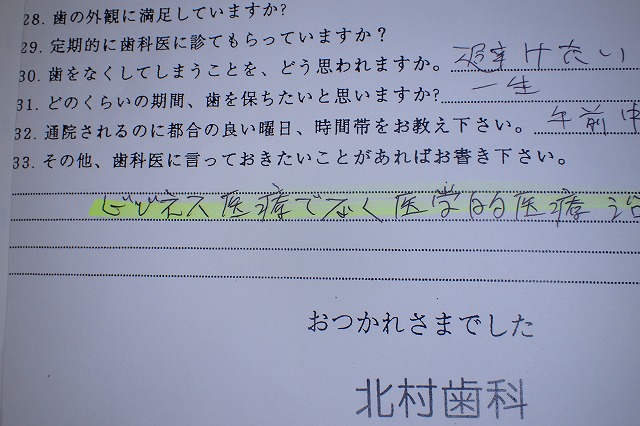 28. 歯の外観に満足していますか?
29. 定期的に歯科医に診てもらっていますか？
30. 歯をなくしてしまうことを、どう思われますか。 避けたい
31. どのくらいの期間、歯を保ちたいと思いますか? 一生
32. 通院されるのに都合の良い曜日、時間帯をお教え下さい。 午前中
33. その他、歯科医に言っておきたいことがあればお書き下さい。
ビジネス医療でなく医学的医療
おつかれさまでした
北村歯科